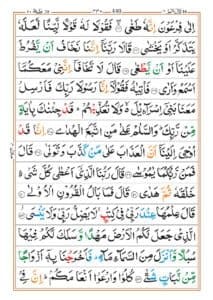 اِلٰى فِرْعَوْنَ اِنَّهٗ طَغٰى ۝ فَقُوْلَا لَهٗ قَوْلًا لَّيِّنًا لَّعَلَّهٗ
يَتَذَكَّرُ اَوْ يَخْشٰى ۝ قَالَا رَبَّنَاۤ اِنَّنَا نَخَافُ اَنْ يَّفْرُطَ
عَلَيْنَاۤ اَوْ اَنْ يَّطْغٰى ۝ قَالَ لَا تَخَافَاۤ اِنَّنِيْ مَعَكُمَاۤ
اَسْمَعُ وَاَرٰى ۝ فَاْتِيٰهُ فَقُوْلَاۤ اِنَّا رَسُوْلَا رَبِّكَ فَاَرْسِلْ مَعَنَا
بَنِيْۤ اِسْرَآءِيْلَ وَلَا تُعَذِّبْهُمْ ؕ قَدْ جِئْنٰكَ بِاٰيَةٍ
مِّنْ رَّبِّكَ ؕ وَالسَّلٰمُ عَلٰى مَنِ اتَّبَعَ الْهُدٰى ۝ اِنَّا قَدْ
اُوْحِيَ اِلَيْنَاۤ اَنَّ الْعَذَابَ عَلٰى مَنْ كَذَّبَ وَتَوَلّٰى ۝ قَالَ
فَمَنْ رَّبُّكُمَا يٰمُوْسٰى ۝ قَالَ رَبُّنَا الَّذِيْۤ اَعْطٰى كُلَّ شَيْءٍ
خَلْقَهٗ ثُمَّ هَدٰى ۝ قَالَ فَمَا بَالُ الْقُرُوْنِ الْاُوْلٰى ۝
قَالَ عِلْمُهَا عِنْدَ رَبِّيْ فِيْ كِتٰبٍ ۚ لَا يَضِلُّ رَبِّيْ وَلَا يَنْسَى ۝
الَّذِيْ جَعَلَ لَكُمُ الْاَرْضَ مَهْدًا وَّسَلَكَ لَكُمْ فِيْهَا
سُبُلًا وَّاَنْزَلَ مِنَ السَّمَآءِ مَآءً ؕ فَاَخْرَجْنَا بِهٖۤ اَزْوَاجًا
مِّنْ نَّبَاتٍ شَتّٰى ۝ كُلُوْا وَارْعَوْا اَنْعَامَكُمْ ؕ اِنَّ فِيْ